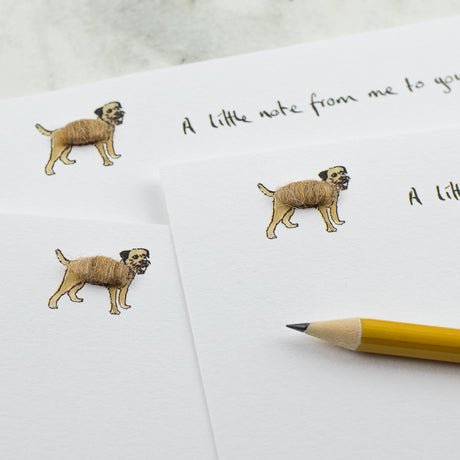 A little note from me to you
A lit